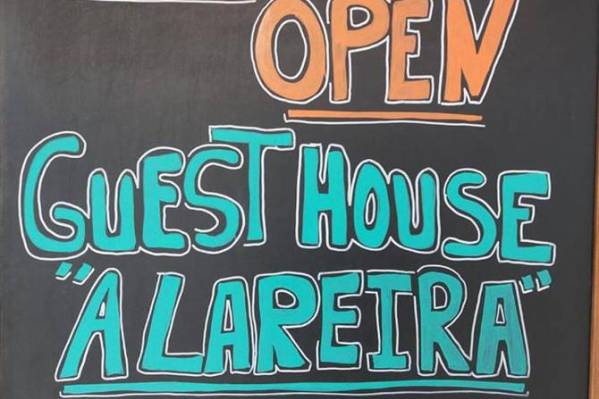 OPEN
GUEST HOUSE
"A LAREIRA"